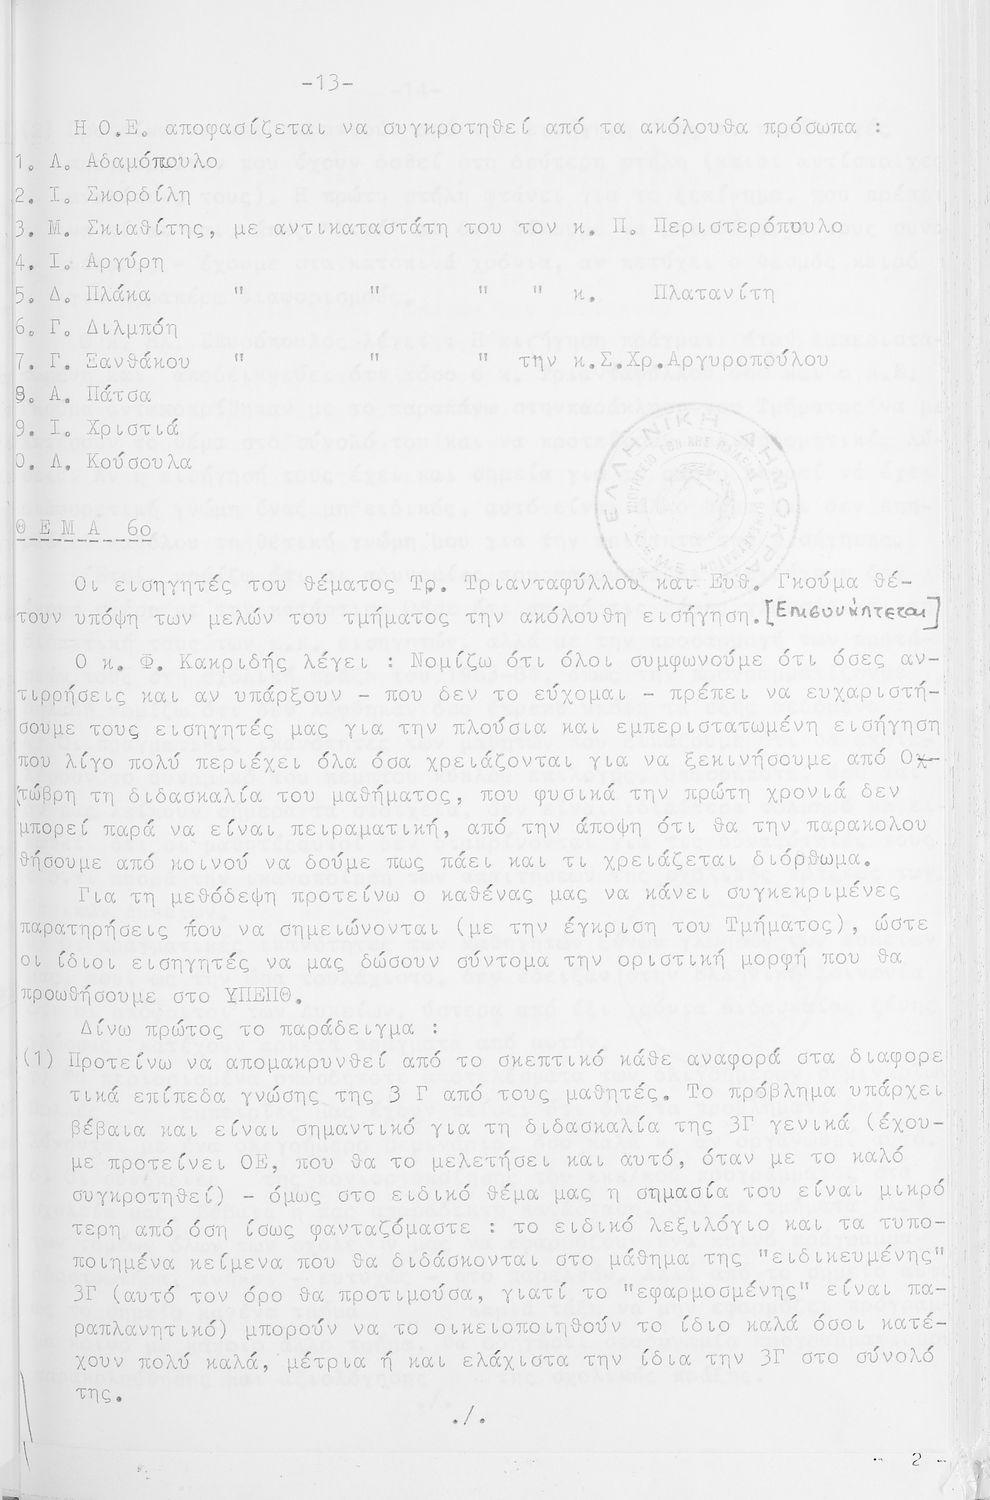 -13-
Η Ο.Ε. αποφασίζεται να συγκροτηθεί από τα ακόλουθα πρόσωπα :
1. Λ. Αδαμόπουλο
2. Ι. Σκορδίλη
3. Μ. Σκιαθίτης, με αντικαταστάτη του τον κ. Π. Περιστερόπουλο
4. Ι. Αργύρη
5. Δ. Πλάκα " " " " κ. Πλατανίτη
6. Γ. Διλμπόη
7. Γ. Ξανθάκου " " " την κ.Σ.Χρ.Αργυροπούλου
8. Α. Πάτσα
9. Ι. Χριστιά
0. Λ. Κούσουλα
ΕΛΛΗΝΙΚΗ ΔΗΜΟΚΡΑΤΙΑ
Θ Ε Μ Α 6ο
Οι εισηγητές του θέματος Τρ. Τριανταφύλλου και Ευθ. Γκούμα θέ-
τουν υπόψη των μελών του τμήματος την ακόλουθη εισήγηση. [Επισυνάπτεται]
Ο κ. Φ. Κακριδής λέγει : Νομίζω ότι όλοι συμφωνούμε ότι όσες αν-
τιρρήσεις και αν υπάρξουν - που δεν το εύχομαι - πρέπει να ευχαριστή-
σουμε τους εισηγητές μας για την πλούσια και εμπεριστατωμένη εισήγηση
που λίγο πολύ περιέχει όλα όσα χρειάζονται για να ξεκινήσουμε από Οχ-
τώβρη τη διδασκαλία του μαθήματος, που φυσικά την πρώτη χρονιά δεν
μπορεί παρά να είναι πειραματική, από την άποψη ότι θα την παρακολου
θήσουμε από κοινού να δούμε πως πάει και τι χρειάζεται διόρθωμα.
Για τη μεθόδεψη προτείνω ο καθένας μας να κάνει συγκεκριμένες
παρατηρήσεις που να σημειώνονται (με την έγκριση του Τμήματος), ώστε
οι ίδιοι εισηγητές να μας δώσουν σύντομα την οριστική μορφή που θα
προωθήσουμε στο ΥΠΕΠΘ.
Δίνω πρώτος το παράδειγμα :
(1) Προτείνω να απομακρυνθεί από το σκεπτικό κάθε αναφορά στα διαφορε
τικά επίπεδα γνώσης της 3 Γ από τους μαθητές. Το πρόβλημα υπάρχει
βέβαια και είναι σημαντικό για τη διδασκαλία της 3Γ γενικά (έχου-
με προτείνει ΟΕ, που θα το μελετήσει και αυτό, όταν με το καλό
συγκροτηθεί) - όμως στο ειδικό θέμα μας η σημασία του είναι μικρό
τερη από όση ίσως φανταζόμαστε : το ειδικό λεξιλόγιο και τα τυπο-
ποιημένα κείμενα που θα διδάσκονται στο μάθημα της "ειδικευμένης"
3Γ (αυτό τον όρο θα προτιμούσα, γιατί το "εφαρμοσμένης" είναι πα-
ραπλανητικό) μπορούν να το οικειοποιηθούν το ίδιο καλά όσοι κατέ-
χουν πολύ καλά, μέτρια ή και ελάχιστα την ίδια την 3Γ στο σύνολό
της.
./.
2